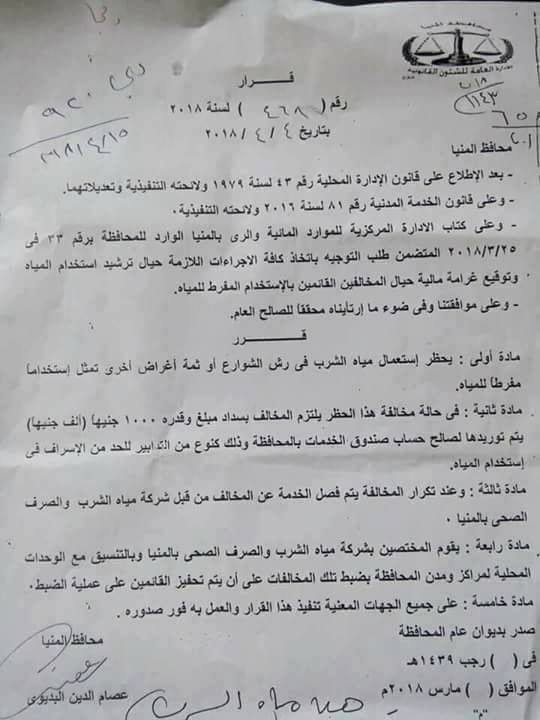 محافظة المنيا
الإدارة العامة للشئون القانونية
قـــرار
رقم ( ٤٦٨ ) لسنة ٢٠١٨
بتاريخ ٤ / ٤ / ٢٠١٨
٩٢٠
٢٠١٨/٤/١٥
١١٤٣
محافظ المنيا
- بعد الإطلاع على قانون الإدارة المحلية رقم ٤٣ لسنة ١٩٧٩ ولائحته التنفيذية وتعديلاتهما.
- وعلى قانون الخدمة المدنية رقم ٨١ لسنة ٢٠١٦ ولائحته التنفيذية٠
- وعلى كتاب الادارة المركزية للموارد المائية والرى بالمنيا الوارد للمحافظة برقم ٣٣ فى
٢٠١٨/٣/٢٥ المتضمن طلب التوجيه بإتخاذ كافة الاجراءات اللازمة حيال ترشيد استخدام المياه
وتوقيع غرامة مالية حيال المخالفين القائمين بالإستخدام المفرط للمياه.
- وعلى موافقتنا وفى ضوء ما إرتأيناه محققاً للصالح العام.
قـــرر
مادة أولى : يحظر إستعمال مياه الشرب فى رش الشوارع أو ثمة أغراض أخرى تمثل إستخداماً
مفرطاً للمياه.
مادة ثانية : فى حالة مخالفة هذا الحظر يلتزم المخالف بسداد مبلغ وقدره ١٠٠٠ جنيهاً (ألف جنيهاً)
يتم توريدها لصالح حساب صندوق الخدمات بالمحافظة وذلك كنوع من التدابير للحد من الإسراف فى
إستخدام المياه.
مادة ثالثة : وعند تكرار المخالفة يتم فصل الخدمة عن المخالف من قبل شركة مياه الشرب والصرف
الصحى بالمنيا ٠
مادة رابعة : يقوم المختصين بشركة مياه الشرب والصرف الصحى بالمنيا وبالتنسيق مع الوحدات
المحلية لمراكز ومدن المحافظة بضبط تلك المخالفات على أن يتم تحفيز القائمين على عملية الضبط٠
مادة خامسة : على جميع الجهات المعنية تنفيذ هذا القرار والعمل به فور صدوره .
صدر بديوان عام المحافظة
فى ( ) رجب ١٤٣٩هـ
الموافق ( ) مارس ٢٠١٨م
محافظ المنيا
عصام الدين البديوى